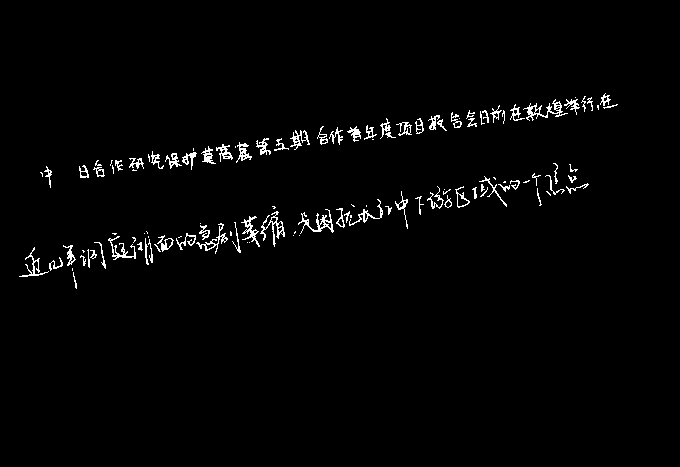 中日合作研究保护莫高窟第五期合作首年度项目报告会日前在敦煌举行,在
近几年洞庭湖面的急剧萎缩,中下游区域的一个焦点